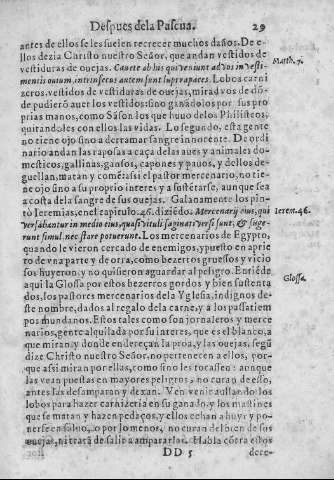 Despues dela Pascua. 29
antes de ellos se les suelen recrecer muchos daños. De e-
llos dezia Christo nuestro Señor, que andan vestidos de
vestiduras de ouejas. Cauete ab his qui veniunt ad vos in vesti- Matth. 7.
mentis ouium, intrinsecus autem sunt lupi rapaces. Lobos carni
zeros, vestidos de vestiduras de ouejas, mirad vos de dó-
de pudieró auer los vestidos: sino ganádolos por sus pro
prias manos, como Sáson los que huuo delos Philisteos;
quitandoles con ellos las vidas. Lo segundo, esta gente
no tiene ojo sino a derramar sangre innocente. De ordi
nario andan las raposas a caça delas aues y animales do-
mesticos, gallinas, gansos, capones y pauos, y dellos de-
guellan, matan y comé: assi el pastor mercenario, no tie-
ne ojo sino a su proprio interes y a sustétarse, aunque sea
a costa dela sangre de sus ouejas. Galanamente los pin-
tó Ieremias, en el capitulo. 46. diziédo. Mercenarij eius, qui Ierem. 46.
versabantur in medio eius, quasi vituli saginati versi sunt, & fuge-
runt simul, nec stare potuerunt. Los mercenarios de Egypto,
quando le vieron cercado de enemigos, y puesto en aprie
to de vna parte y de otra, como bezerros gruessos y vicio
sos huyeron, y no quisieron aguardar al peligro. Entiéde
aqui la Glossa por estos bezerros gordos y bien sustenta Glossa.
dos, los pastores mercenarios dela Yglesia, indignos de-
ste nombre, dados al regalo dela carne, y a los passatiem
pos mundanos. Estos tales como son jornaleros y merce
narios, gente alquilada por su interes, que es el blanco, a
que miran, y donde enderecan la proa, y las ouejas, segú
dize Christo nuestro Señor, no pertenecen a ellos, por-
que assi miran por ellas, como sino les tocassen: aunque
las vean puestas en mayores peligros, no curan de esso,
antes las desamparan y dexan. Ven venir aullando los
lobos para hazer carniceria en su ganado, y los mastines
que se matan y hazen pedaços, y ellos echan a huyr y po-
nerse en saluo, o por lo menos, no curan del bien de sus
ouejas, ni trata de salir a ampararlas. Habla cótra estos
DD 5 dere-